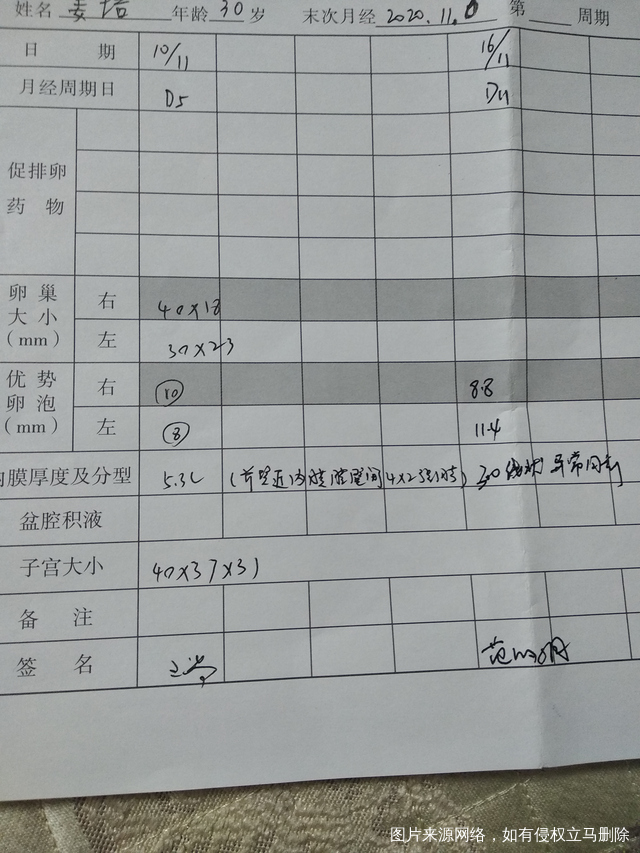 姓名 姜 年龄 30 岁 末次月经 2020.11.6 第 周期
日 期 10/11 16/11
月经周期日 D5 D11
促排卵
药 物
卵 巢
大 小
(mm)
右 40×18
左 30×23
优 势
卵 泡
(mm)
右 10 8.8
左 8 11.4
内膜厚度及分型 5.3C (前壁近内膜 4×2 ) 异常同前
盆腔积液
子宫大小 40×37×31
备 注
签 名
图片来源网络，如有侵权立马删除